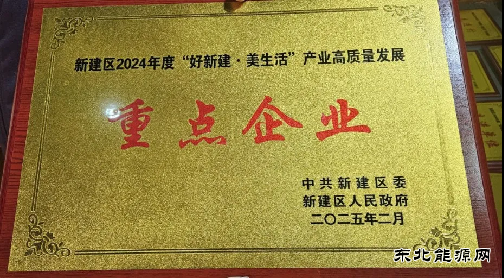 新建区2024年度“好新建·美生活”产业高质量发展
重点企业
中共新建区委
新建区人民政府
二〇二五年二月
东北能源网